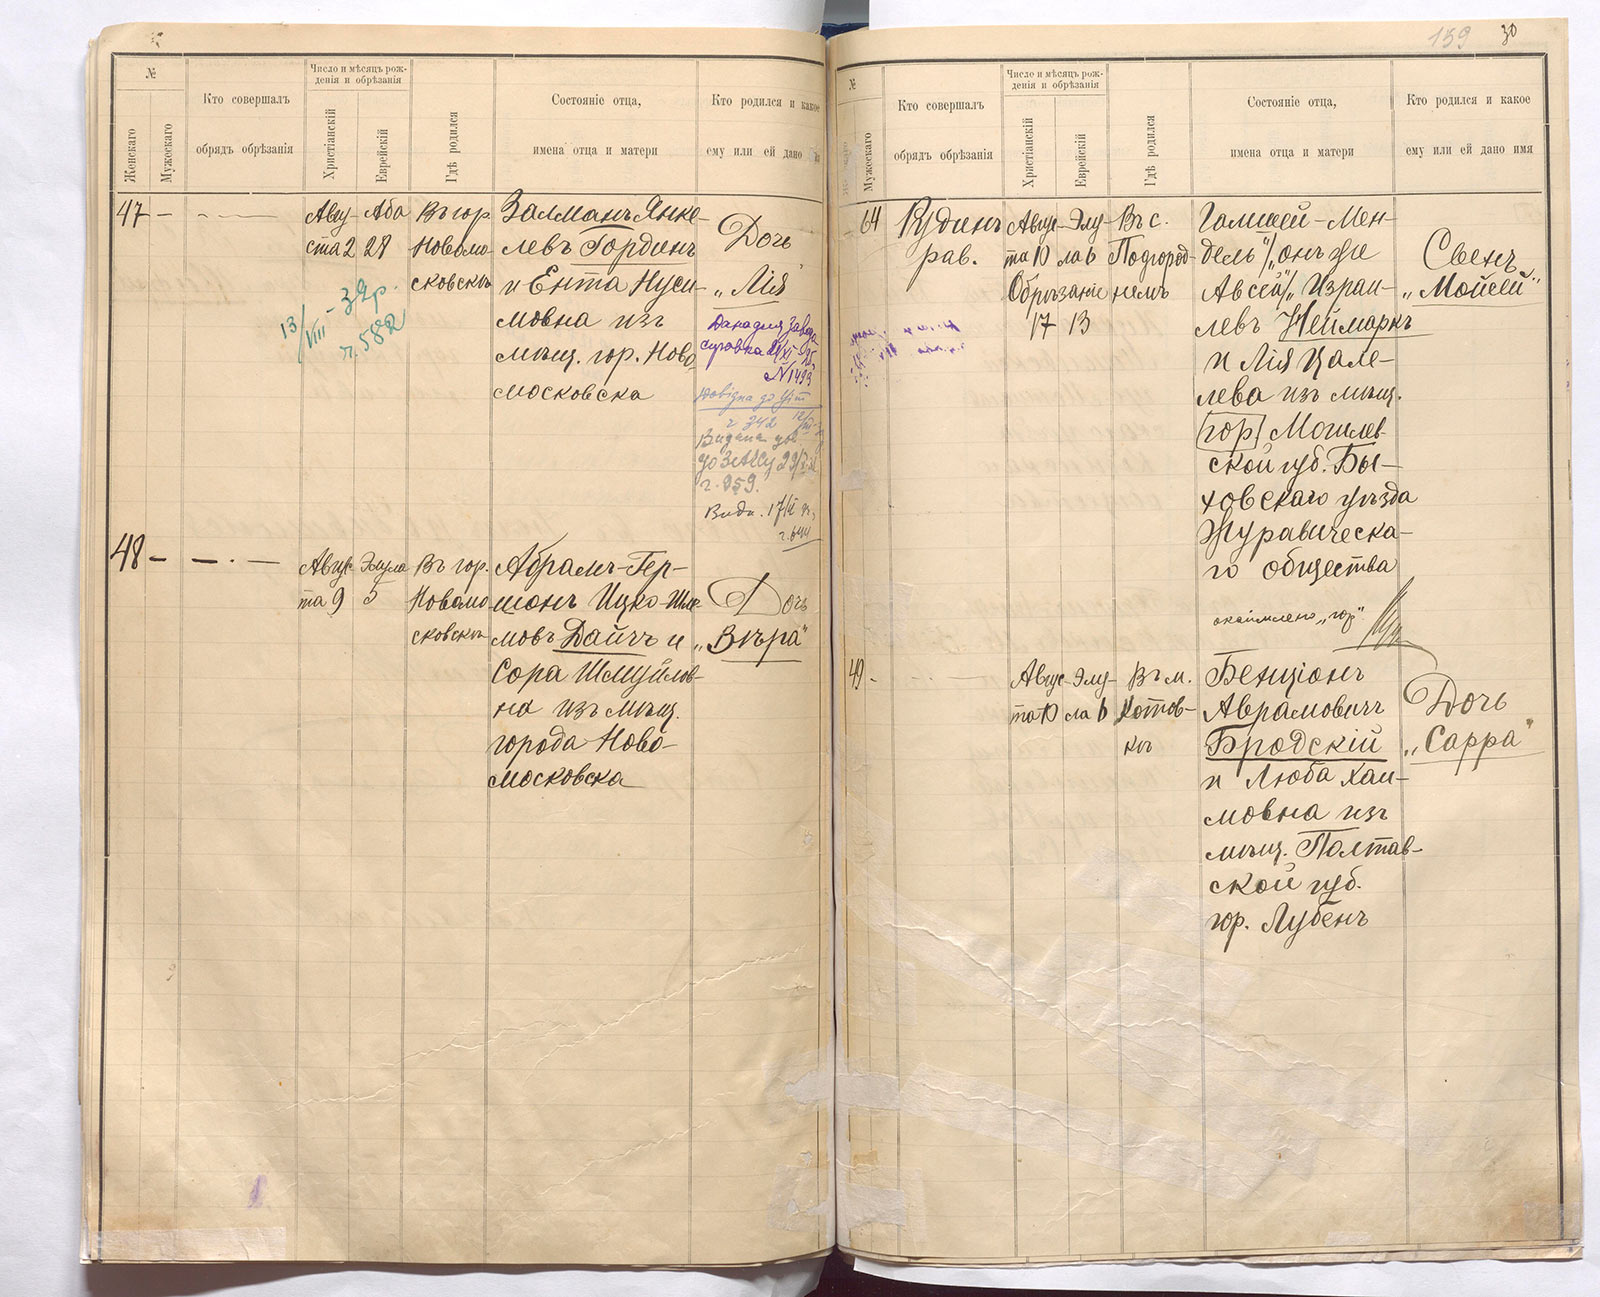 №
Женскаго
Мужескаго
Кто совершалъ
обрядъ обрѣзанія
Число и мѣсяцъ рож-
денія и обрѣзанія
Христіанскій
Еврейскій
Гдѣ родился
Состояніе отца,
имена отца и матери
Кто родился и какое
ему или ей дано
47 –
Авгу-
ста 2
Аба
28
Въ гор.
Новомо-
сковскѣ
Залманъ Янке-
левъ Гординъ
и Ента Нуси-
мовна изъ
мѣщ. гор. Ново-
московска
Дочь
„Лія"
13/VIII – 39р.
ч. 582
справка
№ 1499
ч. 342
Видана
ч. 959.
48 –
Авгус-
та 9
Элула
5
Въ гор.
Новомо-
сковскѣ
Абрамъ-Гер-
шонъ Ицко-Шле-
мовъ Дайчъ и
Сора Шмуйлов-
на изъ мѣщ.
города Ново-
московска
Дочь
„Вѣра"
159 30
№
Мужескаго
Кто совершалъ
обрядъ обрѣзанія
Число и мѣсяцъ рож-
денія и обрѣзанія
Христіанскій
Еврейскій
Гдѣ родился
Состояніе отца,
имена отца и матери
Кто родился и какое
ему или ей дано имя
64
Рудинъ
рав.
Авгус-
та 10
Элу-
ла 6
Обрѣзаніе
17 13
Въ с.
Подгород-
немъ
Галшей-Мен-
дель"/„онъ же
Авсей"/ Израи-
левъ Неймаркъ
и Лія Цале-
лева изъ мѣщ.
[гор] Могилев-
ской губ. Бы-
ховскаго уѣзда
Журавическа-
го общества
окаймлено „гор"
Свенъ
„Мойсей"
49 -
Авгус-
та 10
Элу-
ла 6
Въ м.
Котов-
кѣ
Бенціонъ
Аврамовичъ
Бродскій
и Люба Хаи-
мовна изъ
мѣщ. Полтав-
ской губ.
гор. Лубенъ
Дочь
„Сарра"